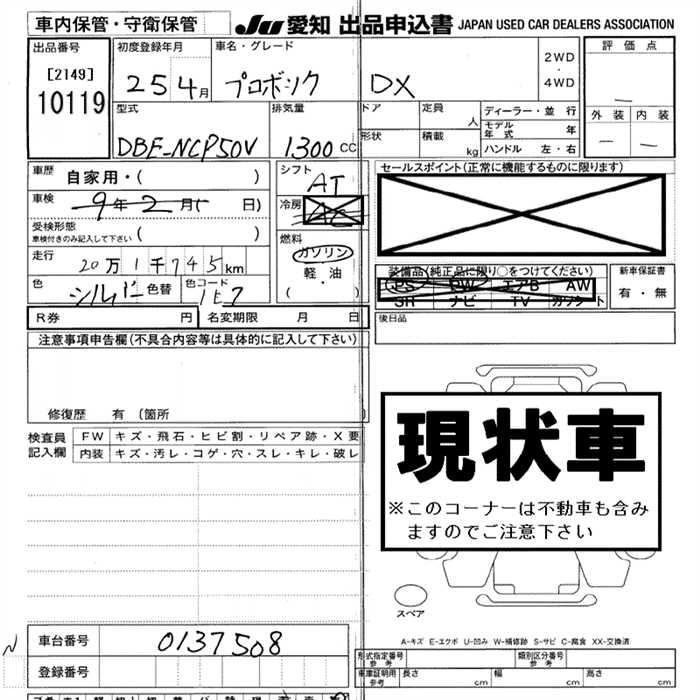 車内保管・守衛保管 JU 愛知 出品申込書 JAPAN USED CAR DEALERS ASSOCIATION
出品番号 初度登録年月 車名・グレード 2WD 評価点
[2149] ・
10119 25 4月 プロボックス DX 4WD
型式 排気量 ドア 定員 人 ディーラー・並行 外装 内装
DBE-NCP50V 1300 CC 形状 積載 kg モデル年式 年
ハンドル 左・右
車歴 自家用・( ) シフト AT セールスポイント(正常に機能するものに限ります)
車検 9年2月( 日) 冷房 AC
受検形態
車検付きのみ記入して下さい ( ) 燃料
ガソリン
軽・油
( )
走行 20万1千745km 装備品(純正品に限り○をつけてください) 新車保証書
色 シルバー 色替 色コード 1E7 PS PW エアB AW 有・無
SR ナビ TV カワシート
R券 円 名変期限 月 日 後日品
注意事項申告欄(不具合内容等は具体的に記入して下さい)
修復歴 有 (箇所 )
検査員 FW キズ・飛石・ヒビ割・リペア跡・X要
記入欄 内装 キズ・汚レ・コゲ・穴・スレ・キレ・破レ
現状車
※このコーナーは不動車も含み
ますのでご注意下さい
スペア
A-キズ E-エクボ U-凹み W-補修跡 S-サビ C-腐食 XX-交換済
車台番号 0137508 形式指定番号 参考 類別区分番号 参考
登録番号 車庫証明用 参考 長さ cm 幅 cm 高さ cm